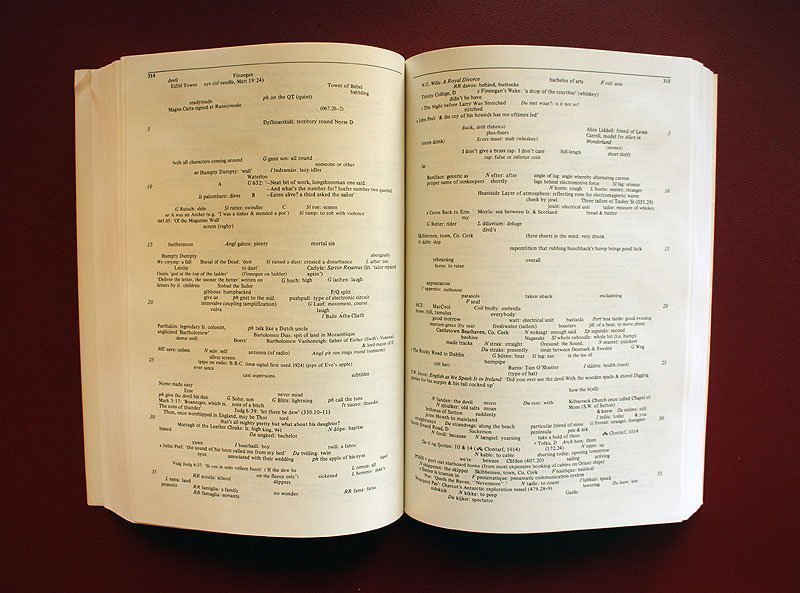 314 Finnegan
devil
Eiffel Tower eye (of needle, Matt 19:24) Tower of Babel
babbling
ph on the QT (quiet)
readymade
Magna Carta signed at Runnymede (067.20–2)
Dyflinarskidi: territory round Norse D
5
both all characters coming around G ganz um: all round
someone or other
nr Humpty Dumpty: 'wall' I lodzamán: lazy idler
Waterloo
A U.632: '–Neat bit of work, longshoreman one said.
10 –And what's the number for? loafer number two queried.
It palombaro: diver B –Eaten alive? a third asked the sailor'
G Rutsch: slide Sl rutter: swindler C Sl roe: semen
nr A was an Archer (e.g. 'I was a tinker & mended a pot') Sl ramp: to rob with violence
045.05: 'Of the Magazine Wall'
scrum (rugby)
15
furthermore Angl galore: plenty mortal sin
Humpty Dumpty aboriginally
We cwymp: a fall Burial of the Dead: 'dust Sl raised a dust: created a disturbance L arbor: tree
Leixlip to dust' Carlyle: Sartor Resartus (lit. 'tailor repaired
Osiris 'god at the top of the ladder' (Finnegan on ladder) again')
'Deliver the letter, the sooner the better' written on G hoch: high G lachen: laugh
letters by Ir. children Sinbad the Sailor
gibbous: humpbacked P/Q split
give us ph grist to the mill pushpull: type of electronic circuit
20 intervalve coupling (amplification) G Lauf: movement, course
vulva laugh
I Baile Átha Cliath
Parthalón: legendary Ir. colonist, ph talk like a Dutch uncle
anglicised 'Bartholomew' Bartolomeu Dias: spit of land in Mozambique
damn well Boers' Bartholomew Vanhomrigh: father of Esther (Swift's Vanessa)
& lord mayor of D
ME sawn: unless N selv: self antenna (of radio) Angl ph run rings round (someone)
silver screen
25 (pips on radio: B.B.C. time signal first used 1924) (pips of Eve's apple)
ever since
cast aspersions subtitles
Norse made easy
Erse never mind
ph give the devil his due G Sohn: son G Blitz: lightning ph call the tune
Mark 3:17: 'Boanerges, which is, sons of a bitch It tuono: thunder
The sons of thunder' Judg 6:39: 'let there be dew' (330.10–11)
30 Thou, once worshipped in England, may be Thor turd
that's all mighty pretty but what about his daughter?
Murtagh of the Leather Cloaks: Ir. high king, 941 N døpe: baptise
hissed Du ungkerl: bachelor
yawn I buachaill: boy twill: a fabric
s John Peel: 'the sound of his horn called me from my bed' Du tvilling: twin
eyes associated with their wedding ph the apple of his eyes lapel
Vulg Judg 6:37: 'Si ros in solo vellere fuerit' ('If the dew be L omnis: all
35 RR scuola: school on the fleece only') sickened L hominis: man's
L terra: land slippers
peanuts RR famiglia: a family
RR famiglia: servants no wonder RR fama: fame
315
W. G. Wills: A Royal Divorce bachelor of arts F cul: arse
RR davos: behind, buttocks
s Finnegan's Wake: 'a drop of the craythur' (whiskey)
Trinity College, D didn't he have
s The Night before Larry Was Stretched Du niet waar?: is it not so?
stitched
s John Peel: '& the cry of his hounds has me oftimes led'
duck, drill (fabrics) Alice Liddell: friend of Lewis 5
plus-fours Carroll, model for Alice in
(more drink) Scots maut: malt (whiskey) Wonderland
(money)
I don't give a brass rap: I don't care full-length short shrift
rap: false or inferior coin
far
Boniface: generic as N efter: after angle of lag: angle whereby alternating current
proper name of innkeepers shortly lags behind electromotive force Sl lag: urinate
N hoste: cough L hostis: enemy, stranger
Heaviside Layer of atmosphere: reflecting zone for electromagnetic waves 10
cheek by jowl Three tailors of Tooley St (053.29)
joule: electrical unit tailor: measure of whiskey
s Come Back to Erin Moyle: sea between Ir. & Scotland bread & butter
my
G Reiter: rider L diluvium: deluge
devil's
Skibbereen, town, Co. Cork three sheets in the wind: very drunk
N skib: ship
superstition that rubbing hunchback's hump brings good luck 15
rehearsing overall
horse: to raise
appearances
F appentis: outhouse
parasols taken aback exclaiming
F seul
HCE MacCool Coll brolly: umbrella 20
howe: hill, tumulus everybody
good morrow watt: electrical unit bastards Port boa tarde: good evening
marram grass (by sea) freshwater (sailors) boasters jill: of a boat, to move about
Castletown Bearhaven, Co. Cork N noksagt: enough said Sp segundo: second
beehive Nagasaki Sl whole caboodle: whole lot (i.e. bump)
made tracks N strak: straight Öresund: the Sound, N snarest: quickest
Du straks: presently strait between Denmark & Sweden G Weg
s The Rocky Road to Dublin G hören: hear Sl lug: ear in the lee of
hornpipe 25
(silt hat) Burns: Tam O'Shanter I sláinte: health (toast)
(type of hat)
P.W. Joyce: English as We Speak It in Ireland: 'Did you ever see the devil With the wooden spade & shovel Digging
praties for his supper & his tail cocked up'
how the hell?
N fanden: the devil morn Du met: with Kilbarrack Church once called Chapel of
N sjøulker: old salts moan Mone (S.W. of Sutton)
Isthmus of Sutton suddenly & knew Da endnu: still 30
joins Howth to mainland I indiu: today & you
straightways Du strandvegs: along the beach particular friend of mine G Fremd: stranger, foreigner
North Strand Road, D Sackerson peninsula pen & ink Clontarf, 1014
N fordi: because N længsel: yearning take a hold of them
Da ti og fjorten: 10 & 14 (Clontarf, 1014) r Tolka, D Arch hem: them
N kable: to cable (172.24) N opp: up
shutting today, opening tomorrow
we're beware Clifden (407.20) sailing arriving
POSH = port out starboard home (from most expensive booking of cabins on Orient ships)
N skipperen: the skipper Skibbereen, town, Co. Cork F nautique: nautical
F pneumatique: pneumatic communication system
Poe: 'Quoth the Raven, "Nevermore"' N tælle: to count I labhair: speak
'Pourquoi Pas': Charcot's Antarctic exploration vessel (479.28–9) lowering Du lauw: law
sidekick N kikke: to peep Gaelic
Du kijker: spectator